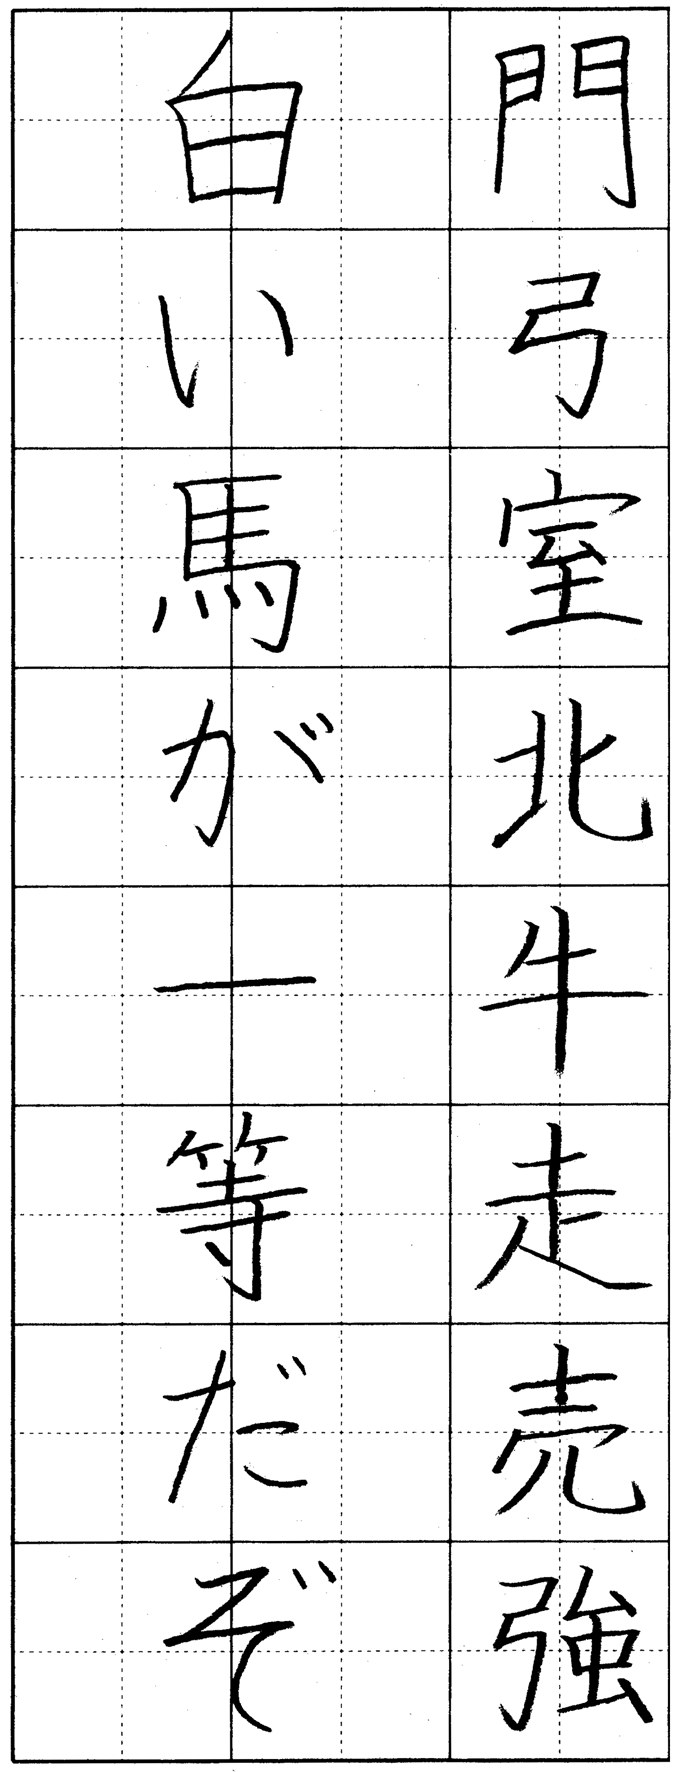 門弓室北牛走売強
白い馬が一等だぞ